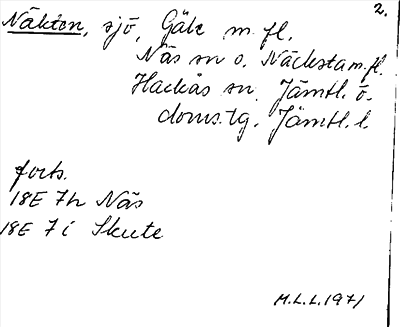 2.
Näkten, sjö, Gäle m. fl.
Näs sn o. Näcksta m. fl.
Hackås sn. Jämtl. ö.
doms.lg. Jämtl. l.
forts.
18E 7h Näs
18E 7i Skute
M.L.L. 1971